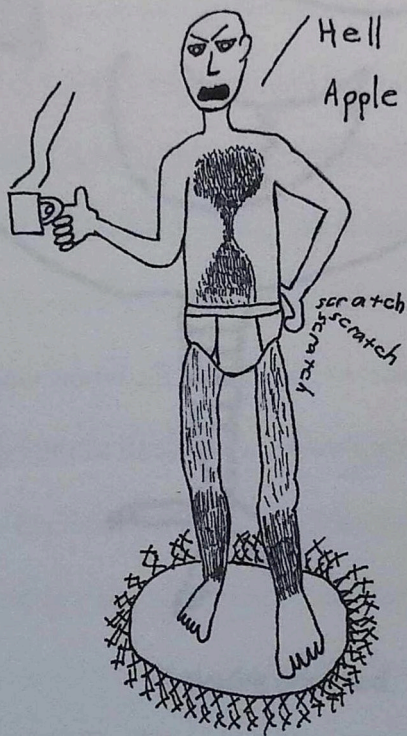 Hell
Apple
scratch
scratch
scratch